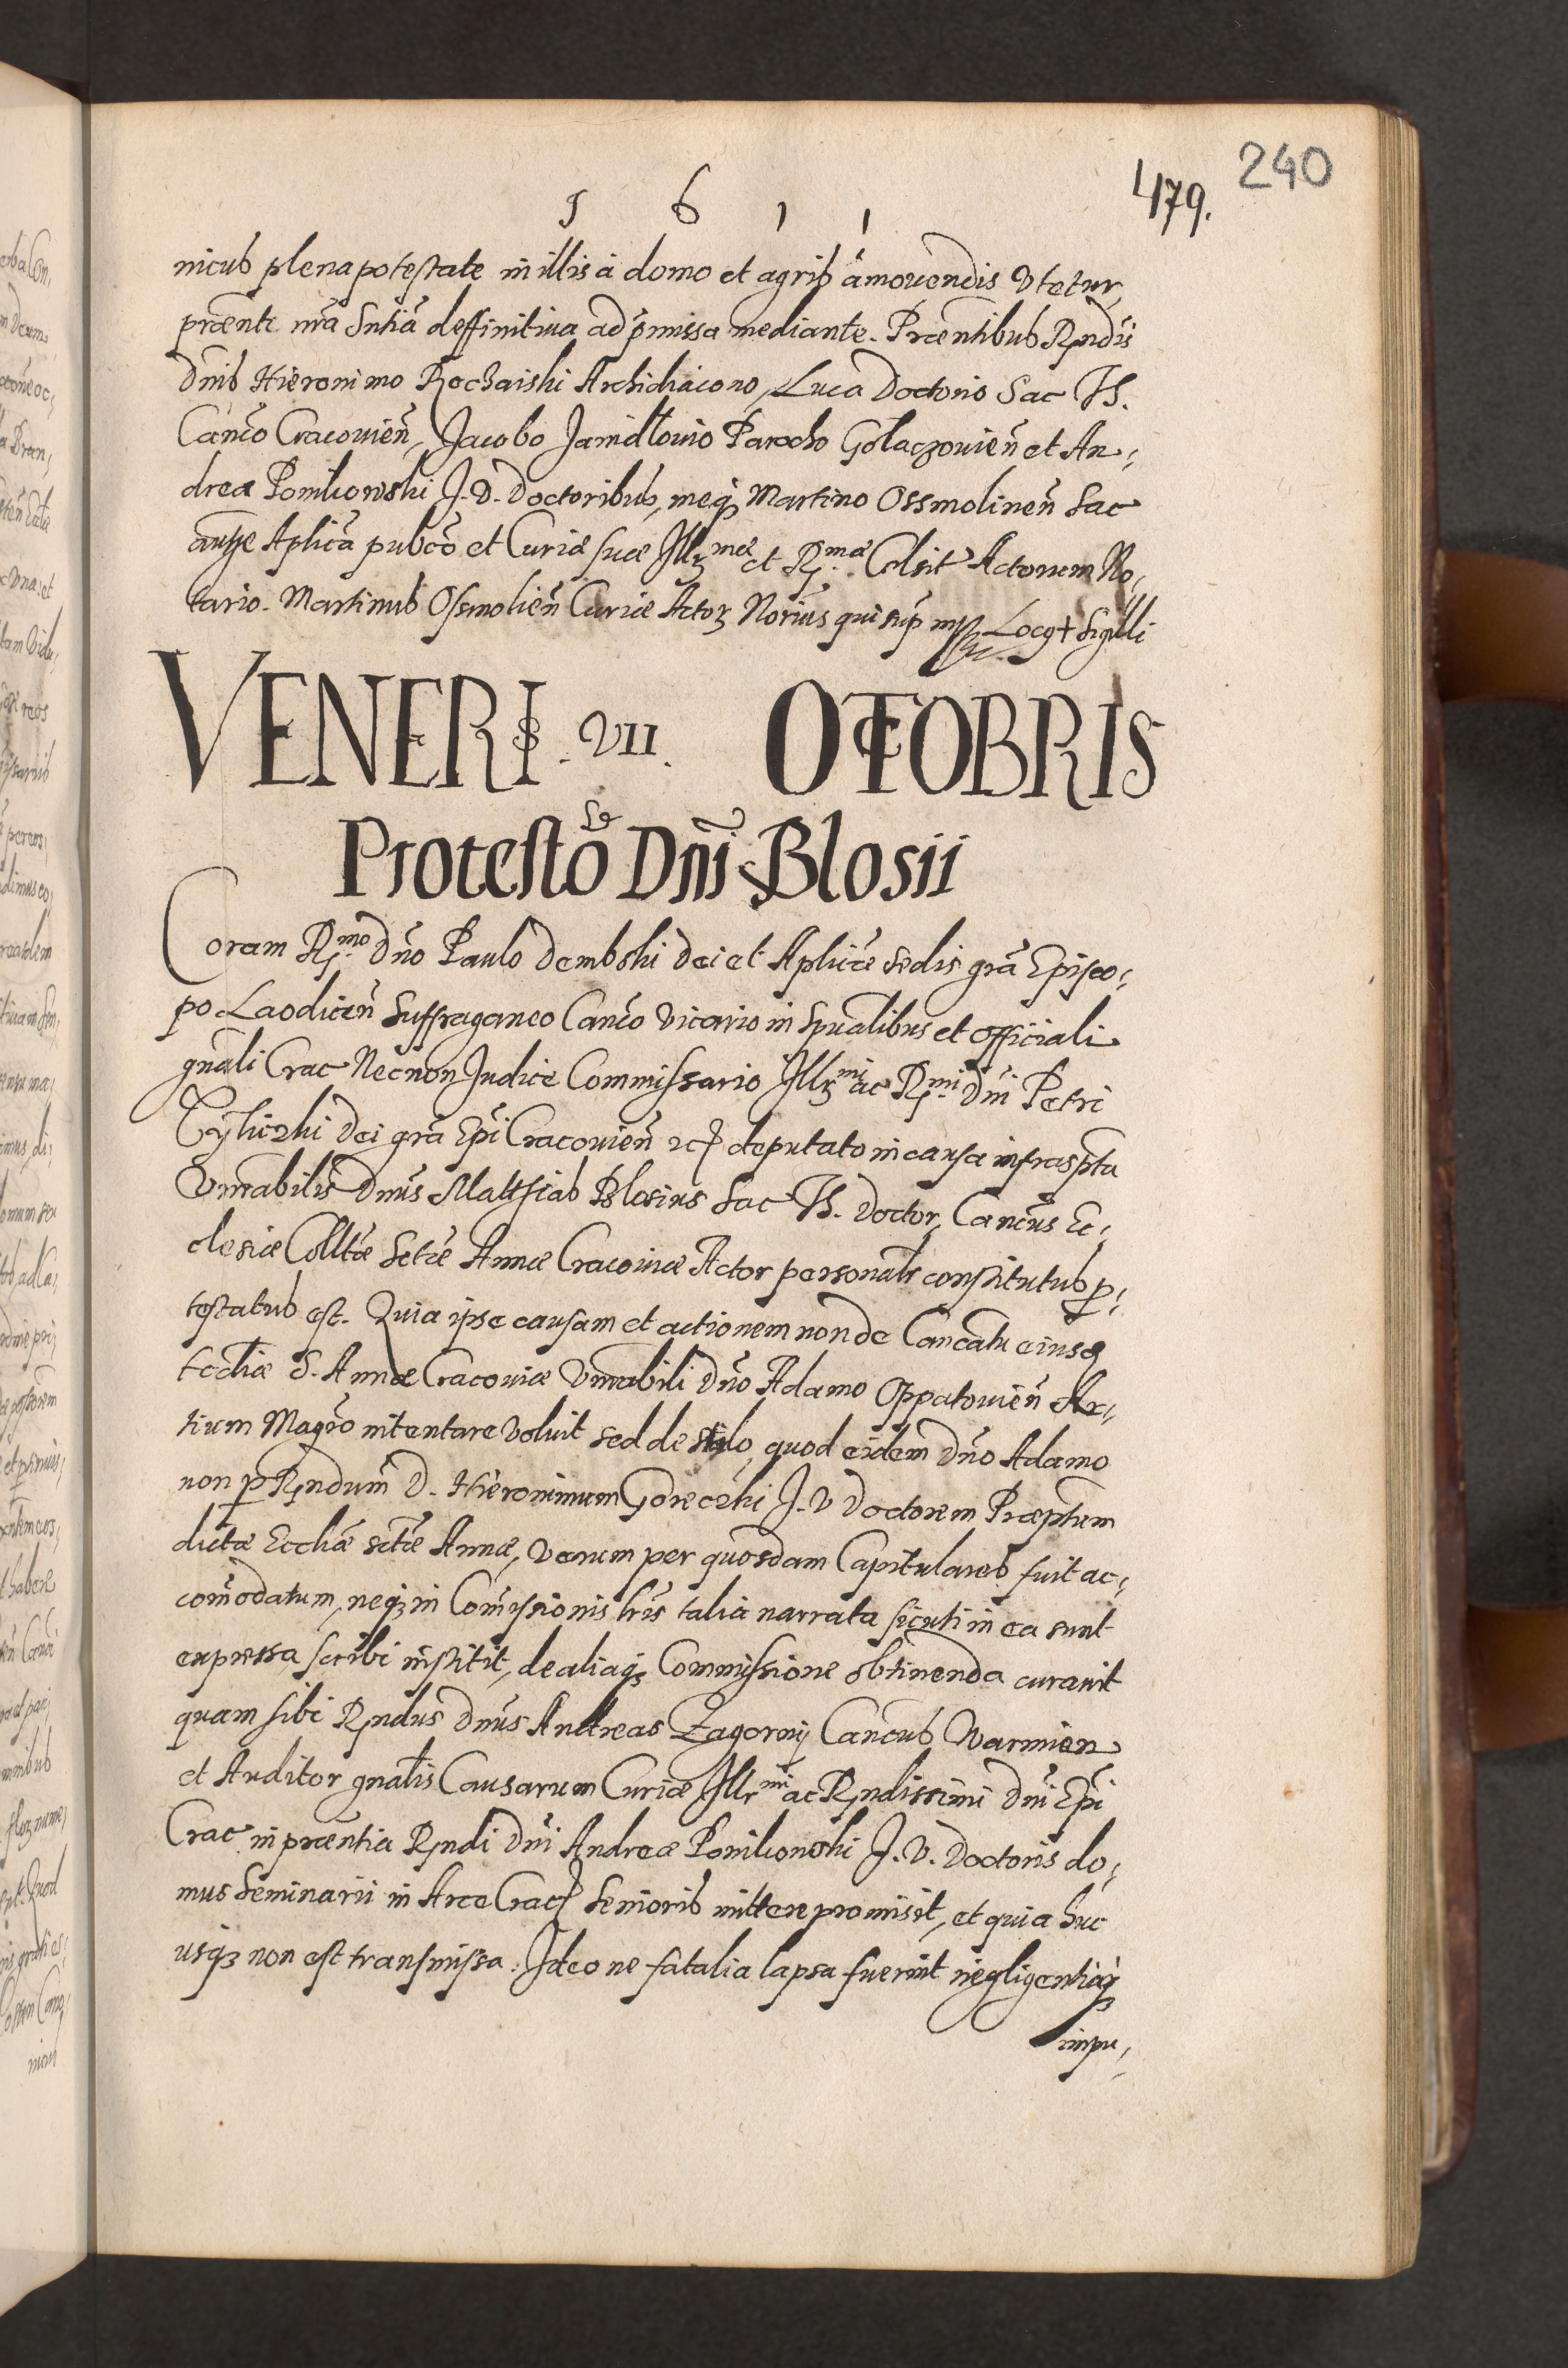 240
479.
1 6 1 1
nicus plena potestate in illis à domo et agris amouendis utetur,
præsente nrã Sntiã deffinitiua ad pmissa mediante. Præntibus Rndis
Dnis Hieronimo Rechaiski Archidiacono, Luca Doctoris Sac Th.
Canco Cracouien, Jacobo Janidlouio Parocho Golaczouien et An,
drea Pomkowski J. V. Doctoribus, meq Martino Ossmolinen Sac
autte Aplica pubco et Curiæ suæ Illmæ et Rmæ Celsit Actorum No,
tario. Martinus Ossmolien Curiæ Actor Norius qui sup mp Locg + Sigilli
VENERIS . VII . OCTOBRIS
Protesto Se Dni Blosii
Coram Rmo Dno Paulo Dembski dei et Aplicæ sedis gra Episco,
po Laodicen Suffraganeo Canco Vicario in Spualibus et Officiali
gnali Crac Necnon Judice Commissario Illmi ac Rmi Dni Petri
Tyliczki Dei gra Epi Cracouien etc deputato in causa infraspta
Vnerabilis Dnus Matthias Blosius Sac Th. Doctor, Cancus Ec,
clesiæ Colltæ Sctæ Annæ Cracouiæ Actor personalr constitutus p,
testatus est. Quia ipse causam et actionem non de Cancatu eiusd
Eccliæ S. Annæ Cracouiæ Vnerabili Dno Adamo Oppatouien Ar,
tium Magro intentare voluit sed de stylo, quod eidem Dno Adamo
non p Rndum D. Hieronimum Goreczki J. V Doctorem Præptum
dictæ Eccliæ sctæ Annæ, verum per quosdam Capitulares fuit ac,
comodatum, neq in Comissionis lris talia narrata sicuti in ea sunt
expressa scribi institit, de aliaq Commissione obtinenda curauit
quam sibi Rndus Dnus Andreas Zagorny Cancus Warmien
et Auditor gnalis Causarum Curiæ Illrmi ac Rndissimi Dni Epi
Crac in præntia Rndi Dni Andreæ Pomkowski J. V. Doctoris do,
mus Seminarii in Arce Crac Senioris mittere promisit, et quia huc
usq non est transmissa. Ideo ne fatalia lapsa fuerint negligentiaq
impu,